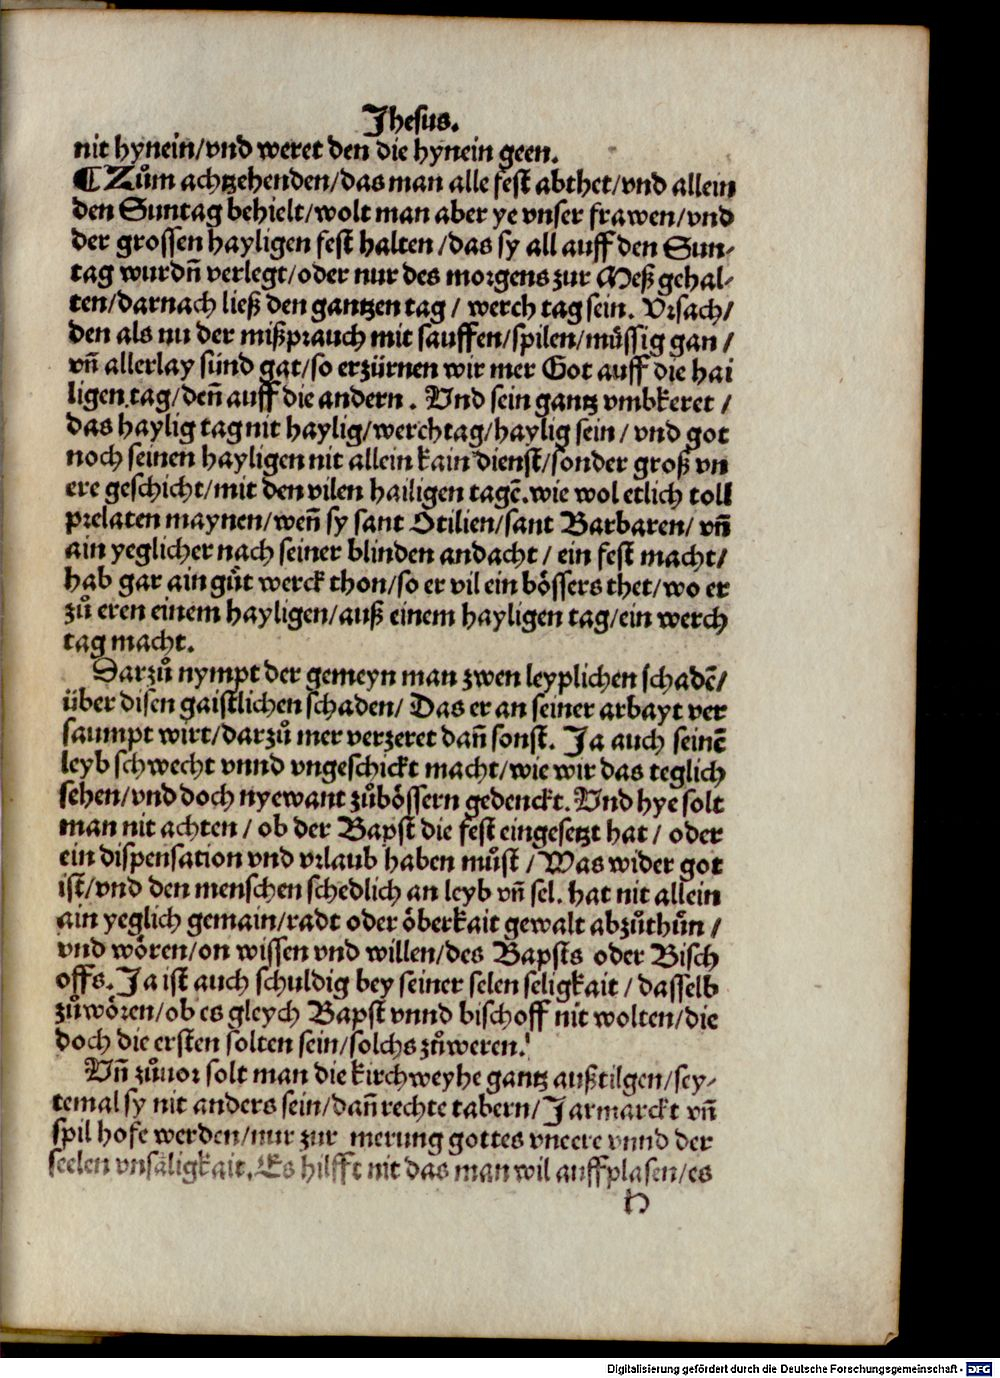 Jhesus.
nit hynein/vnd weret den die hynein geen.
¶ Zům achtzehenden/das man alle fest abthet/vnd allein
den Suntag behielt/wolt man aber ye vnser frawen/vnd
der grossen hayligen fest halten/das sy all auff den Sun-
tag wurdñ verlegt/oder nur des morgens zur Meß gehal-
ten/darnach ließ den gantzen tag/ werch tag sein. Vrsach/
den als nu der mißprauch mit sauffen/spilen/müssig gan/
vñ allerlay sünd gat/so erzürnen wir mer Got auff die hai
ligen tag/deñ auff die andern. Vnd sein gantz vmbkeret/
das haylig tag nit haylig/werchtag/haylig sein/vnd got
noch seinen hayligen nit allein kain dienst/sonder groß vn
ere geschicht/mit den vilen hailigen tagē.wie wol etlich toll
prelaten maynen/weñ sy sant Otilien/sant Barbaren/ vñ
ain yeglicher nach seiner blinden andacht/ ein fest macht/
hab gar ain gůt werck thon/so er vil ein bössers thet/wo er
zů eren einem hayligen/auß einem hayligen tag/ein werch
tag macht.
Darzů nympt der gemeyn man zwen leyplichen schadē/
über disen gaistlichen schaden/ Das er an seiner arbayt ver
saumpt wirt/darzů mer verzeret dañ sonst. Ja auch seinē
leyb schwecht vnnd vngeschickt macht/wie wir das teglich
sehen/vnd doch nyewant zůbössern gedenckt. Vnd hye solt
man nit achten/ ob der Bapst die fest eingesetzt hat/ oder
ein dispensation vnd vrlaub haben můst/Was wider got
ist/vnd den menschen schedlich an leyb vñ sel. hat nit allein
ain yeglich gemain/radt oder öberkait gewalt abzůthůn/
vnd wören/on wissen vnd willen/des Bapsts oder Bisch
offs. Ja ist auch schuldig bey seiner selen seligkait/dasselb
zůwören/ob es gleych Bapst vnnd bischoff nit wolten/die
doch die ersten solten sein/solchs zůweren.
Vñ zůuor solt man die kirchweyhe gantz außtilgen/sey-
temal sy nit anders sein/dañ rechte tabern/Jarmarckt vñ
spil hofe werden/nur zur merung gottes vneere vnnd der
seelen vnsäligkait. Es hilfft nit das man wil auffplasen/es
h
Digitalisierung gefördert durch die Deutsche Forschungsgemeinschaft - DFG